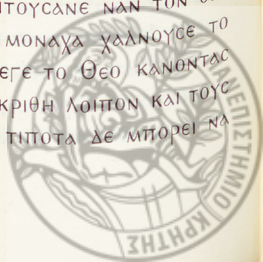 ΙΤΟΥCΑΝΕ ΝΑΝ ΤΟΝ
ΜΟΝΑΧΑ ΧΑΛΝΟΥCΕ ΤΟ
ΕΓΕ ΤΟ ΘΕΟ ΚΑΝΟΝΤΑC
ΚΡΙΘΗ ΛΟΙΠΟΝ ΚΑΙ ΤΟΥC
ΤΙΠΟΤΑ ΔΕ ΜΠΟΡΕΙ ΝΑ
ΠΑΝΕΠΙΣΤΗΜΙΟ ΚΡΗΤΗΣ